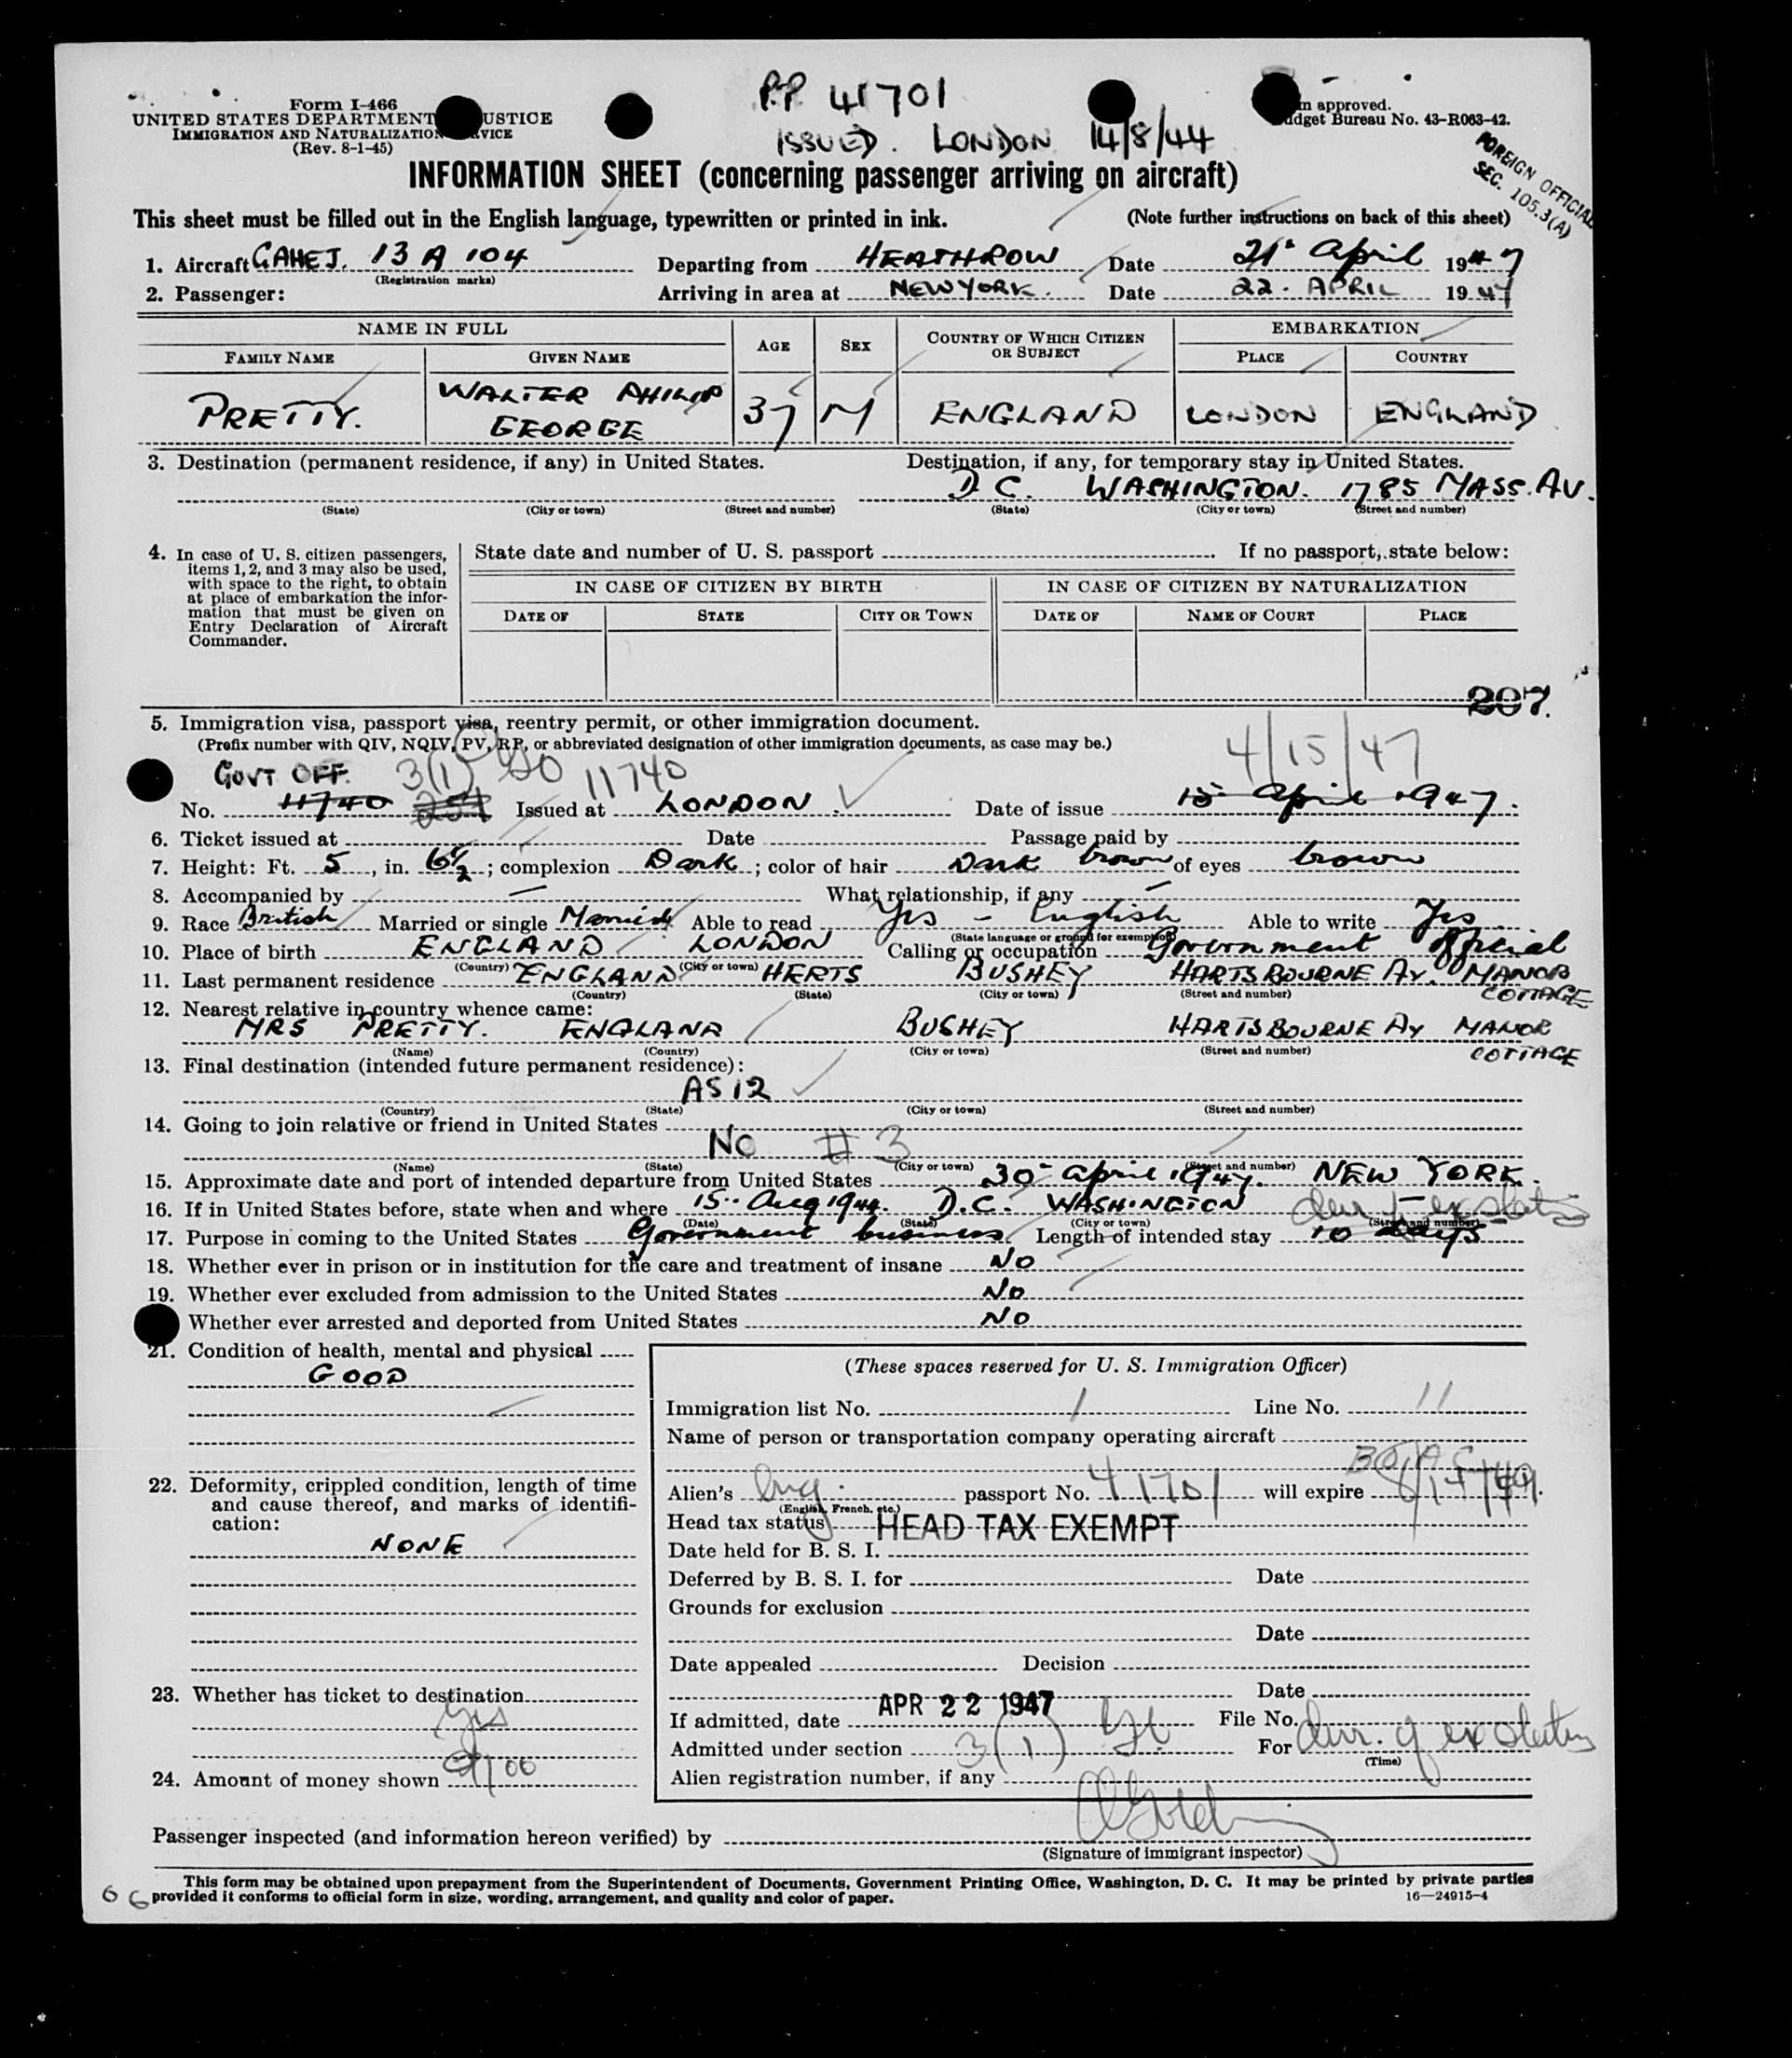 P.P. 41701
ISSUED. LONDON 14/8/44
Form I-466
UNITED STATES DEPARTMENT USTICE
IMMIGRATION AND NATURALIZATION VICE
(Rev. 8-1-45)
n approved.
dget Bureau No. 43-R063-42.
FOREIGN OFFICIAL
SEC. 105.3(A)
INFORMATION SHEET (concerning passenger arriving on aircraft)
This sheet must be filled out in the English language, typewritten or printed in ink. (Note further instructions on back of this sheet)
1. Aircraft GAHEJ. 13 A 104 Departing from HEATHROW Date 21st April 1947
(Registration marks)
2. Passenger: Arriving in area at NEW YORK. Date 22. APRIL 1947
NAME IN FULL AGE SEX COUNTRY OF WHICH CITIZEN OR SUBJECT EMBARKATION
FAMILY NAME GIVEN NAME PLACE COUNTRY
PRETTY. WALTER PHILIP GEORGE 37 M ENGLAND LONDON ENGLAND
3. Destination (permanent residence, if any) in United States. Destination, if any, for temporary stay in United States.
D.C. WASHINGTON. 1785 MASS. AV.
(State) (City or town) (Street and number) (State) (City or town) (Street and number)
4. In case of U. S. citizen passengers, items 1, 2, and 3 may also be used, with space to the right, to obtain at place of embarkation the information that must be given on Entry Declaration of Aircraft Commander.
State date and number of U. S. passport If no passport, state below:
IN CASE OF CITIZEN BY BIRTH IN CASE OF CITIZEN BY NATURALIZATION
DATE OF STATE CITY OR TOWN DATE OF NAME OF COURT PLACE
207.
5. Immigration visa, passport visa, reentry permit, or other immigration document.
(Prefix number with QIV, NQIV, PV, RP, or abbreviated designation of other immigration documents, as case may be.)
GOVT OFF. 3(1) 11740 4/15/47
No. 11740 257 Issued at LONDON. Date of issue 15 April 1947.
6. Ticket issued at Date Passage paid by
7. Height: Ft. 5, in. 6 1/2; complexion Dark; color of hair Dark brown of eyes brown
8. Accompanied by — What relationship, if any —
9. Race British Married or single Married Able to read Yes - English Able to write Yes
(State language or ground for exemption)
10. Place of birth ENGLAND LONDON Calling or occupation Government official
(Country) (City or town)
11. Last permanent residence ENGLAND HERTS BUSHEY HARTSBOURNE AV. MANOR COTTAGE
(Country) (State) (City or town) (Street and number)
12. Nearest relative in country whence came:
MRS PRETTY. ENGLAND BUSHEY HARTSBOURNE AV MANOR COTTAGE
(Name) (Country) (City or town) (Street and number)
13. Final destination (intended future permanent residence):
AS 12
(Country) (State) (City or town) (Street and number)
14. Going to join relative or friend in United States
NO # 3
(Name) (State) (City or town) (Street and number)
15. Approximate date and port of intended departure from United States 30 April 1947. NEW YORK.
16. If in United States before, state when and where 15 Aug 1944. D.C. WASHINGTON —
(Date) (State) (City or town) (Street and number)
17. Purpose in coming to the United States Government business Length of intended stay 10 days
18. Whether ever in prison or in institution for the care and treatment of insane NO
19. Whether ever excluded from admission to the United States No
Whether ever arrested and deported from United States NO
21. Condition of health, mental and physical
GOOD
22. Deformity, crippled condition, length of time and cause thereof, and marks of identification:
NONE
23. Whether has ticket to destination
Yes
24. Amount of money shown
(These spaces reserved for U. S. Immigration Officer)
Immigration list No. 1 Line No. 11
Name of person or transportation company operating aircraft
BOAC
Alien's Eng. passport No. 41701 will expire 8/14/49.
(English, French, etc.)
Head tax status HEAD TAX EXEMPT
Date held for B. S. I.
Deferred by B. S. I. for Date
Grounds for exclusion
Date
Date appealed Decision
Date
If admitted, date APR 22 1947 File No.
Admitted under section 3(1) For dur. of ex status
(Time)
Alien registration number, if any
Passenger inspected (and information hereon verified) by
(Signature of immigrant inspector)
This form may be obtained upon prepayment from the Superintendent of Documents, Government Printing Office, Washington, D. C. It may be printed by private parties
6 6 provided it conforms to official form in size, wording, arrangement, and quality and color of paper. 16—24915-4